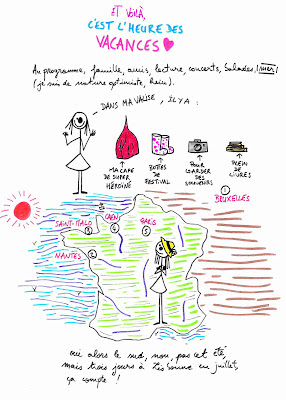 ET VOILÀ,
C'EST L'HEURE DES
VACANCES
Au programme, famille, amis, lecture, concerts, balades, mer!
(je suis de nature optimiste, hein).
DANS MA VALISE, IL Y A :
MA CAPE DE SUPER HÉROÏNE
BOTTES DE FESTIVAL
POUR GARDER DES SOUVENIRS
PLEIN DE LIVRES
1 BRUXELLES
SAINT-MALO 3
CAEN 4
PARIS 5
NANTES 2
oui alors le sud, non, pas cet été,
mais trois jours à Lisbonne en juillet,
ça compte !